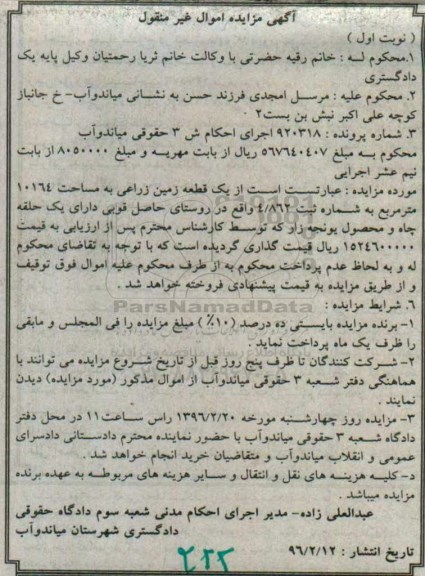 آگهی مزایده اموال غیر منقول
( نوبت اول )
۱.محکوم لـه : خانم رقیه حضرتی با وکالت خانم ثریا رحمتیان وکیل پایه یک
دادگستری
۲. محکوم علیه : مرسل امجدی فرزند حسن به نشانی میاندوآب- خ جانباز
کوچه علی اکبر نبش بن بست۲
۳. شماره پرونده : ۹۲۰۳۱۸ اجرای احکام ش ۳ حقوقی میاندوآب
محکوم بـه مبلغ ۵۶۷۶۴۰۴۰۷ ریال از بابت مهریـه و مبلغ ۸۰۵۰۰۰۰ از بابت
نیم عشر اجرایی
مورده مزایده : عبارتست است از یک قطعه زمین زراعی به مساحت ۱۰۱۶۴
مترمربع به شماره ثبت ۴/۸۹۲ واقع در روستای حاصل قوبی دارای یک حلقه
چاه و محصول یونجه زار که توسط کارشناس محترم پس از ارزیابی به قیمت
۱۵۲۴۶۰۰۰۰۰ ریال قیمت گذاری گردیده است که با توجه به تقاضای محکوم
له و به لحاظ عدم پرداخت محکوم به از طرف محکوم علیه اموال فوق توقیف
و از طریق مزایده به قیمت پیشنهادی فروخته خواهد شد .
۶. شرایط مزایده :
۱- برنده مزایده بایستی ده درصد (۱۰٪) مبلغ مزایده را فی المجلس و مابقی
را ظرف یک ماه پرداخت نماید .
۲- شرکت کنندگان تا ظرف پنج روز قبل از تاریخ شروع مزایده می توانند با
هماهنگی دفتر شعبه ۳ حقوقی میاندوآب از اموال مذکور (مورد مزایده) دیدن
نمایند .
۳- مزایده روز چهارشنبه مورخه ۱۳۹۶/۲/۲۰ راس ساعت۱۱ در محل دفتر
دادگاه شعبه ۳ حقوقی میاندوآب با حضور نماینده محترم دادستانی دادسرای
عمومی و انقلاب میاندوآب و متقاضیان خرید انجام خواهد شد .
د- کلیـه هزینـه های نقل و انتقال و سایر هزینه های مربوطـه به عهده برنده
مزایده میباشد .
عبدالعلی زاده- مدیر اجرای احکام مدنی شعبه سوم دادگاه حقوقی
دادگستری شهرستان میاندوآب
تاریخ انتشار : ۹۶/۲/۱۲
ParsNamadData